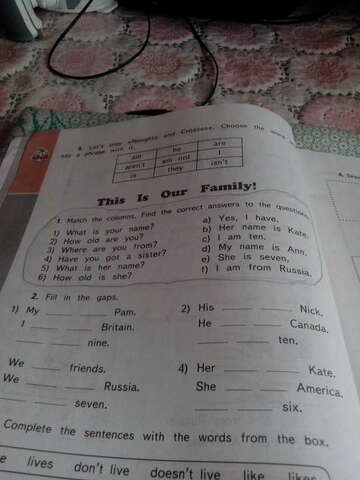 5. Let's play «Noughts and Crosses». Choose the word
say a phrase with it.
am he are
aren't am not I
is they isn't
This Is Our Family!
1. Match the columns. Find the correct answers to the questions.
1) What is your name?
2) How old are you?
3) Where are you from?
4) Have you got a sister?
5) What is her name?
6) How old is she?
a) Yes, I have.
b) Her name is Kate.
c) I am ten.
d) My name is Ann.
e) She is seven.
f) I am from Russia.
2. Fill in the gaps.
1) My ___ ___ Pam.
I ___ ___ Britain.
___ ___ nine.
2) His ___ ___ Nick.
He ___ ___ Canada.
___ ___ ten.
We ___ ___ friends.
We ___ ___ Russia.
___ ___ seven.
4) Her ___ ___ Kate.
She ___ ___ America.
___ ___ six.
Complete the sentences with the words from the box.
lives don't live doesn't live like likes